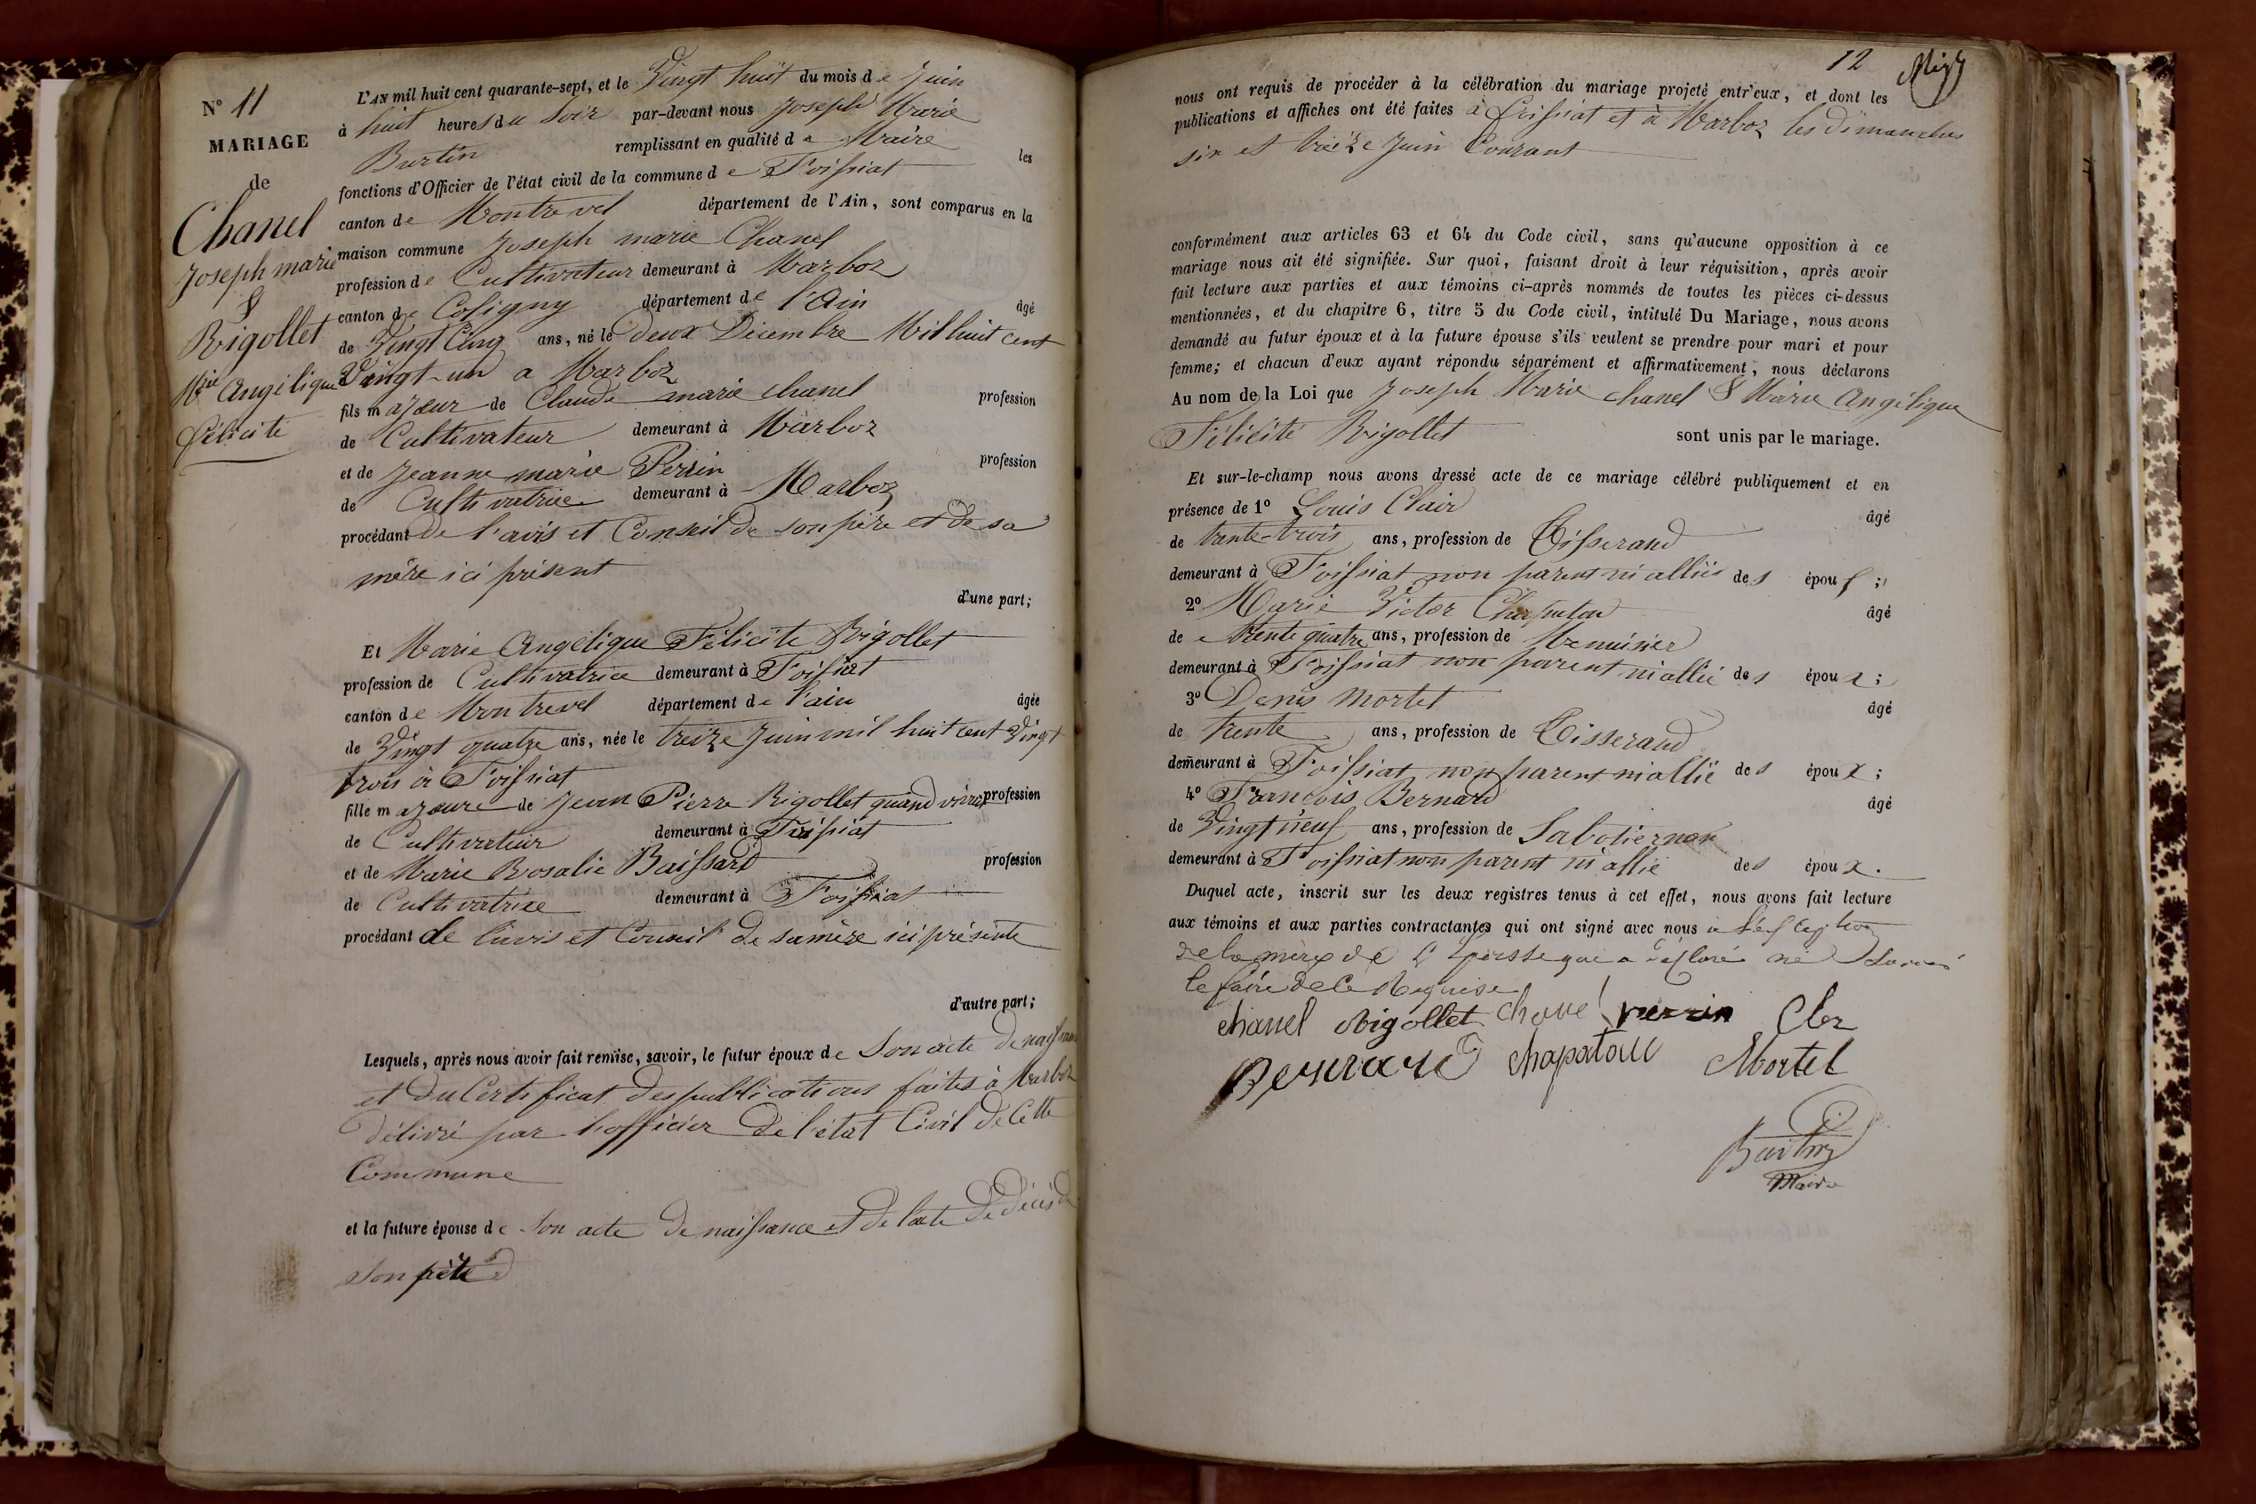 N° 11
MARIAGE
de
Chanel
Joseph marie
&
Rigollet
Mie Angélique
félicité
L'AN mil huit cent quarante-sept, et le Vingt huit du mois de Juin
à huit heures du Soir par-devant nous Joseph Marie
Burtin remplissant en qualité de Maire les
fonctions d'Officier de l'état civil de la commune de Foissiat
canton de Montrevel département de l'Ain, sont comparus en la
maison commune Joseph marie Chanel
profession de Cultivateur demeurant à Marboz
canton de Coligny département de l'Ain âgé
de Vingt Cinq ans, né le deux Décembre Mil huit cent
Vingt-un a Marboz
fils majeur de Claude marie chanel profession
de Cultivateur demeurant à Marboz
et de Jeanne marie Perrin profession
de Cultivatrice demeurant à Marboz
procédant de l'avis et Conseil de son père et de sa
mère ici présent
d'une part;
Et Marie Angélique Félicité Rigollet
profession de Cultivatrice demeurant à Foissiat
canton de Montrevel département de l'ain âgée
de Vingt quatre ans, née le treize Juin mil huit cent Vingt
trois à Foissiat
fille majeure de Jean Pierre Rigollet quand vivait profession
de Cultivateur demeurant à Foissiat
et de Marie Rosalie Baissard profession
de Cultivatrice demeurant à Foissiat
procédant de l'avis et Conseil de sa mère ici présente
d'autre part;
Lesquels, après nous avoir fait remise, savoir, le futur époux de Son acte de naissance
et du Certificat des publications faites à Marboz
délivré par l'officier de l'état Civil de Cette
Commune
et la future épouse de son acte de naissance et de l'acte de décès de
son père
12
nous ont requis de procéder à la célébration du mariage projeté entr'eux, et dont les
publications et affiches ont été faites à Foissiat et à Marboz les dimanches
six et treize Juin Courant
conformément aux articles 63 et 64 du Code civil, sans qu'aucune opposition à ce
mariage nous ait été signifiée. Sur quoi, faisant droit à leur réquisition, après avoir
fait lecture aux parties et aux témoins ci-après nommés de toutes les pièces ci-dessus
mentionnées, et du chapitre 6, titre 5 du Code civil, intitulé Du Mariage, nous avons
demandé au futur époux et à la future épouse s'ils veulent se prendre pour mari et pour
femme; et chacun d'eux ayant répondu séparément et affirmativement, nous déclarons
Au nom de la Loi que Joseph Marie chanel & Marie Angélique
Félicité Rigollet sont unis par le mariage.
Et sur-le-champ nous avons dressé acte de ce mariage célébré publiquement et en
présence de 1° Louis Clair âgé
de trente-trois ans, profession de Tisserand
demeurant à Foissiat non parent ni alliés des époux;
2° Marie Victor Chapatou âgé
de trente quatre ans, profession de Menuisier
demeurant à Foissiat non parent ni allié des époux;
3° Denis Mortel âgé
de trente ans, profession de Tisserand
demeurant à Foissiat non parent ni allié des époux;
4° François Bernard âgé
de Vingt neuf ans, profession de Sabotier non
demeurant à Foissiat non parent ni allié des époux.
Duquel acte, inscrit sur les deux registres tenus à cet effet, nous avons fait lecture
aux témoins et aux parties contractantes qui ont signé avec nous à l'exception
de la mère de l'épouse qui a déclaré ne savoir
le faire de ce Requise
chanel Rigollet chanel perrin Cler
Bernard chapatou Mortel
Burtin
Maire